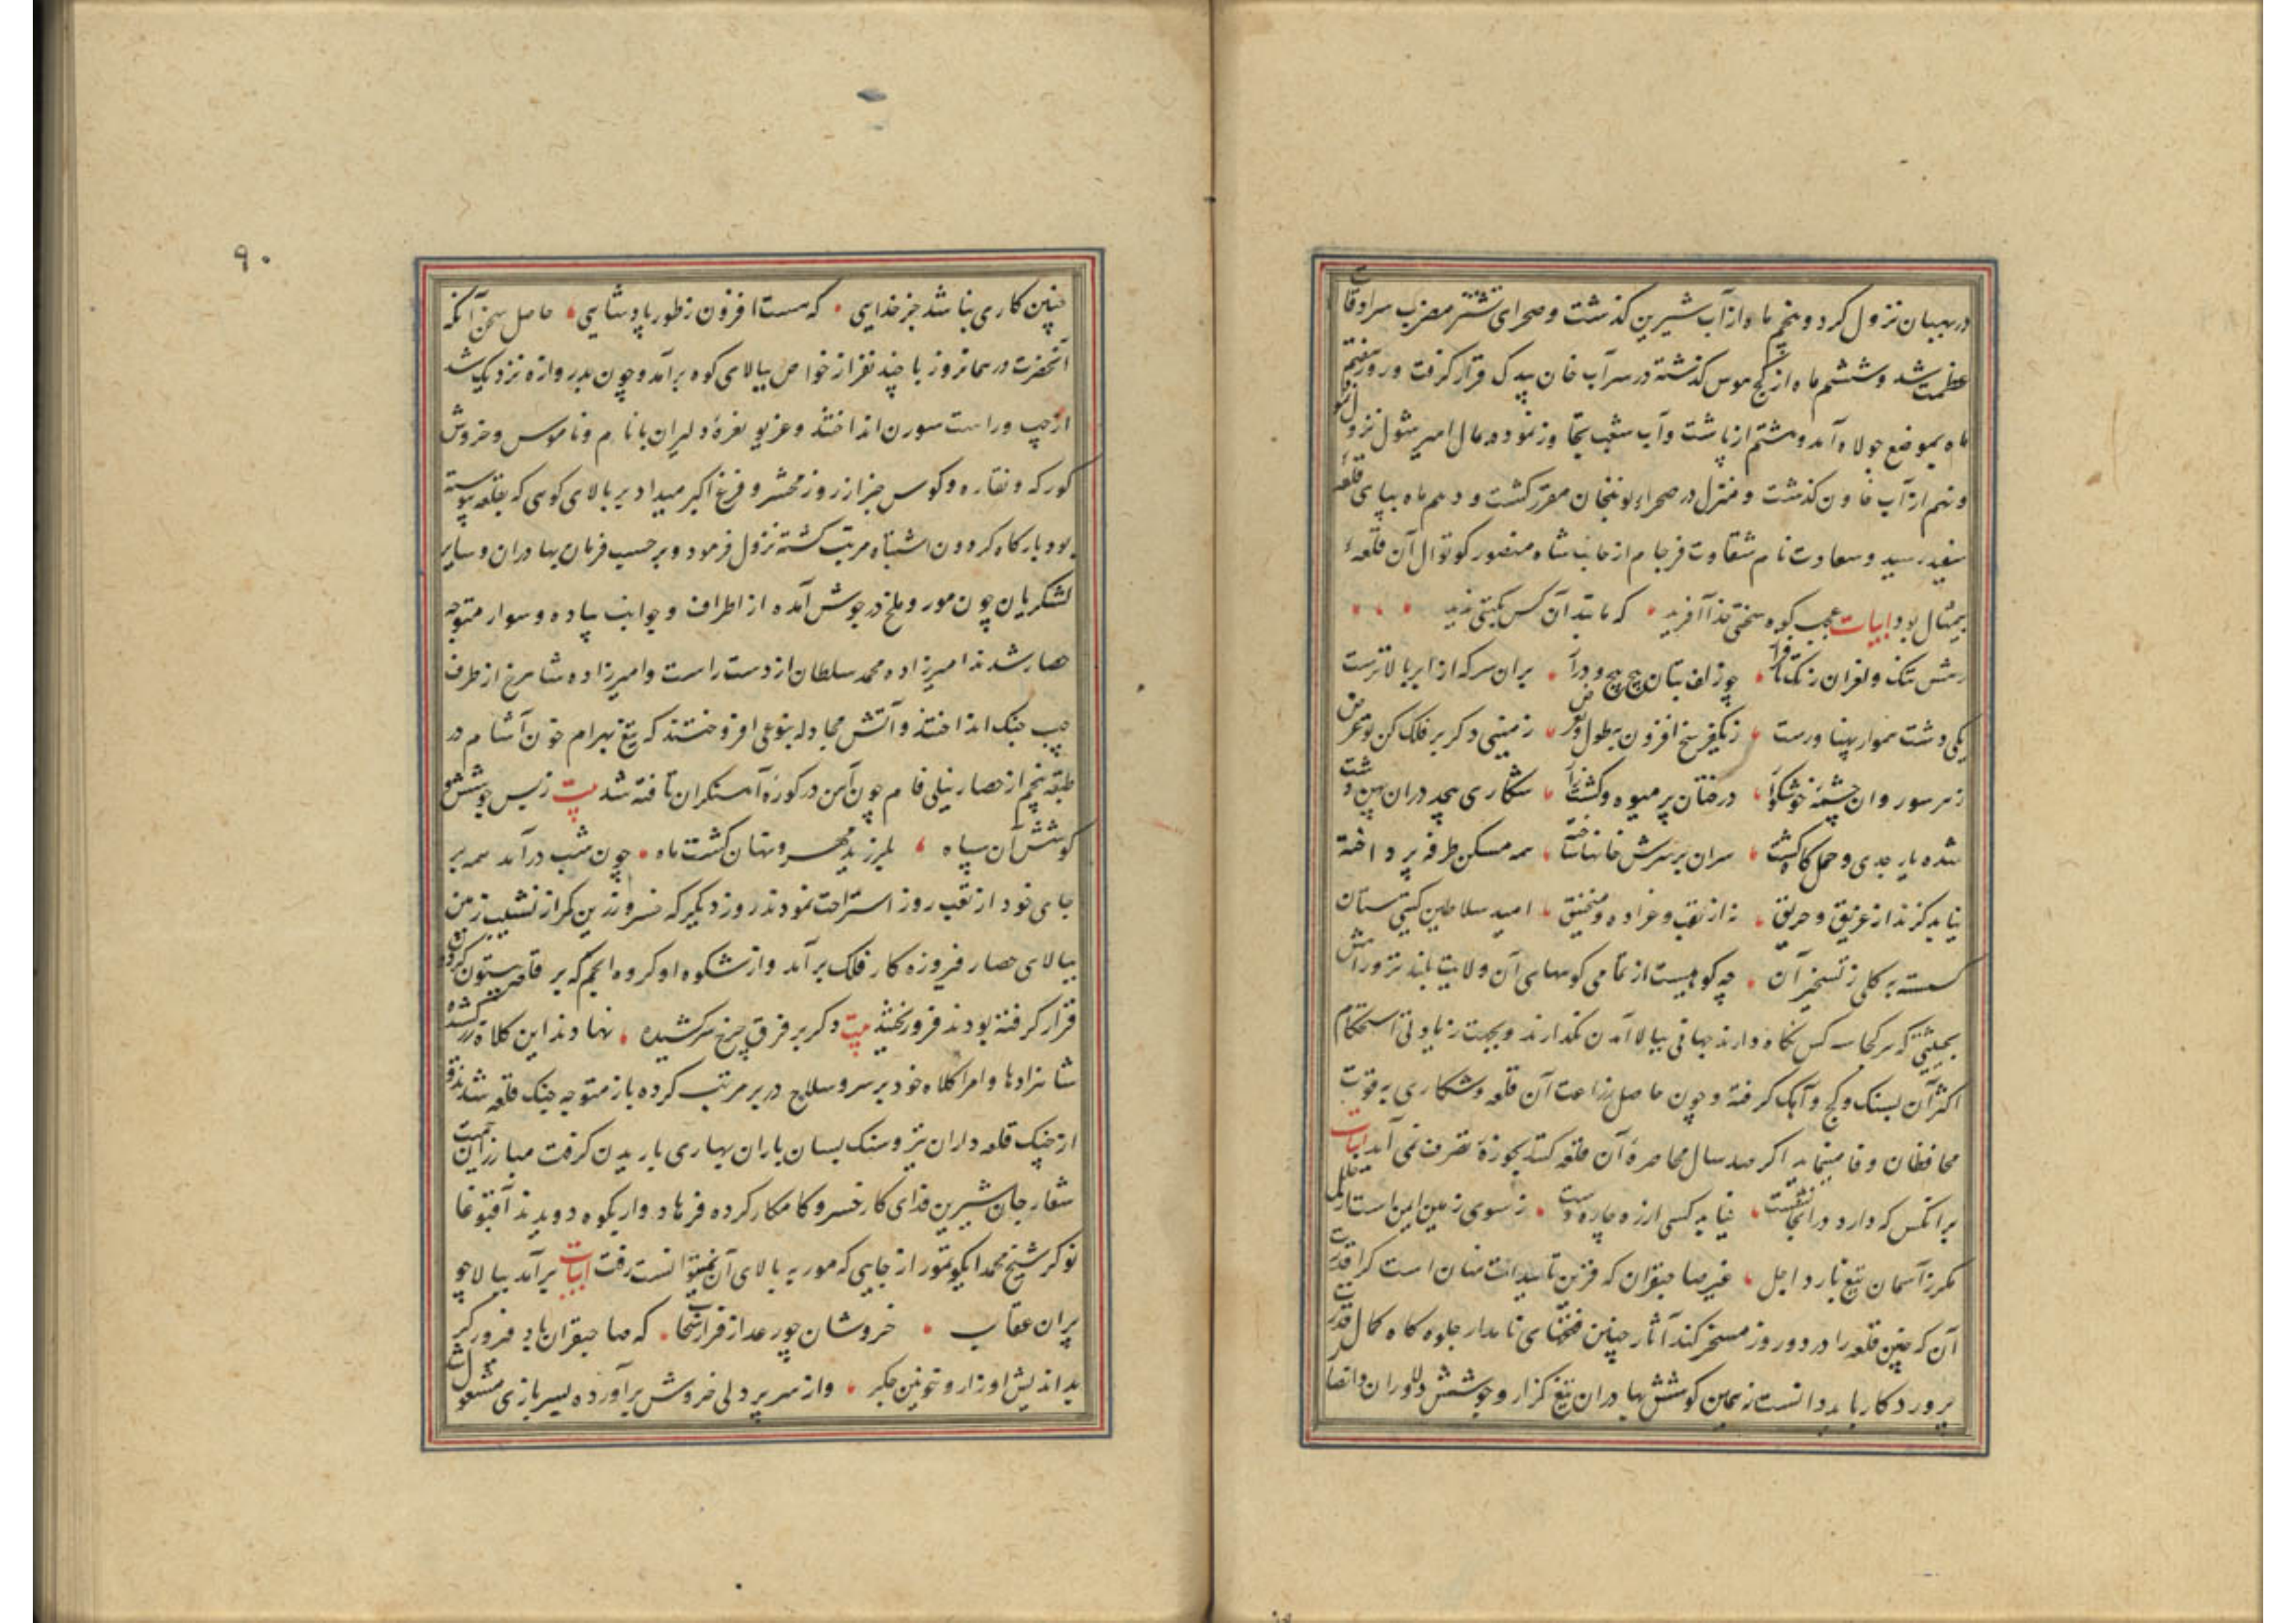 در بهبهان نزول کرد و پنجم ماه از آب شیرین کذشت و صحرای تشتر مضرب سرادقات
عظمت شد و ششم ماه از کچ موس کذشته در سرآب خان بیدک قرار کرفت و روز هفتم
ماه بموضع جولاه آمد و هشتم از پاشت و آب شعب تجاوز نموده مال امیر شول نزول فرمود
و نهم از آب خاون کذشت و منزل در صحراء نوبنجان مقرر کشت و دهم ماه بپای قلعهٔ
سفید رسید و سعادت نام شقاوت فرجام از جانب شاه منصور کوتوال آن قلعهٔ
بیمثال بود ابیات عجب کوه سختی خدا آفرید که مانند آن کس بکیتی ندید
رهش تنک و لغزان ز تک تا فراز چو زلف بتان پیچ پیچ و دراز بران سر که از ابر بالاترست
یکی دشت هموار پهناورست ز یکفرسخ افزون بطول و بعرض زمینی دکر بر فلک کن تو فرض
ز هر سو روان چشمهٔ خوشکوار درختان پر میوه و کشتزار شکاری بیحد دران پهن دشت
شده یار جدی و حمل کاه کشت سران بر سرش خانها ساخته همه مسکن طرفه پرداخته
نیابد کزند از غریق و حریق نه از نقب و عراده و منجنیق امید سلاطین کیتی ستان
کسسته بکلی ز تسخیر آن چه کوهیست از تمامی کوههای آن ولایت بلندتر و راهش
بحیثیتی که هر کجا سه کس نکاه دارند جهانی ببالا آمدن نکذارند و بجهت زیادتی استحکام
اکثر آن بسنک و کچ و آهک کرفته و چون حاصل زراعت آن قلعه و شکاری به قوت
محافظان وفا مینماید اکر صد سال محاصرهٔ آن قلعه کنند بحوزهٔ تصرف نمی آید ابیات
برانکس که دارد در انجا نشست نیابد کسی ارزو چاره دست ز سوی زمین ایمن است از خلل
مکر ز آسمان تیغ بارد اجل غیر صاحبقران که قرین تاییدات منان است کرا قدرت
آن که چنین قلعه را در دو روز مسخر کند آثار چنین فتحهای نامدار جلوه کاه کمال قدرت
پروردکار باید دانست نه همین کوشش بهادران تیغ کزار و جوشش دلاوران و انصار
۹۰
چنین کاری نباشد جز خدایی که هست افزون ز طور پادشایی حاصل سخن آنکه
آنحضرت در همانروز با چند نفر از خواص ببالای کوه برآمد و چون بدروازه نزدیک شد
از چپ و راست سورن انداختند و غریو نعرهٔ دلیران با نام و ناموس و خروش
کورکه و نقاره و کوس خبر از روز محشر و فزع اکبر میداد بر بالای کوهی که بقلعه پیوسته
بود بارکاه کردون اشتباه مرتب کشته نزول فرمود و بر حسب فرمان بهادران و سایر
لشکریان چون مور و ملخ در جوش آمده از اطراف و جوانب پیاده و سوار متوجه
حصار شدند امیرزاده محمد سلطان از دست راست و امیرزاده شاهرخ از طرف
چپ جنک انداختند و آتش مجادله بنوعی افروختند که تیغ بهرام خون آشام در
طبقه پنجم از حصار نیلی فام چون آهن در کورهٔ آهنکران تافته شد بیت ز بس جوشش و
کوشش آن سپاه بلرزید مهر و نهان کشت ماه چون شب درآمد همه بر
جای خود از تعب روز استراحت نمودند روز دیکر که خسرو زرین کمر از نشیب زمین
ببالای حصار فیروزه کار فلک برآمد و از شکوه او کروه انجم که بر قلعه بیستون کردون
قرار کرفته بودند فرو ریختند بیت دکر بر فرق چرخ سرکشیده نهادند این کلاه زر کشیده
شاهزادها و امرا کلاه خود بر سر و سلاح در بر مرتب کرده باز متوجه جنک قلعه شدند و
از جنک قلعه داران تیر و سنک بسان باران بهاری باریدن کرفت مبارزان حمیت
شعار جان شیرین فدای کار خسرو کامکار کرده فرهاد وار بکوه دویدند آقبوغا
نوکر شیخ محمد ایکو تمور از جایی که مور به بالای آن نمیتوانست رفت ابیات برآمد ببالا چو
پران عقاب خروشان چو رعد از فراز سحاب که صاحبقران باد فیروزکر
بد اندیش او زار و خونین جکر و از سر پر دلی خروش برآورده بسربازی مشغول شد